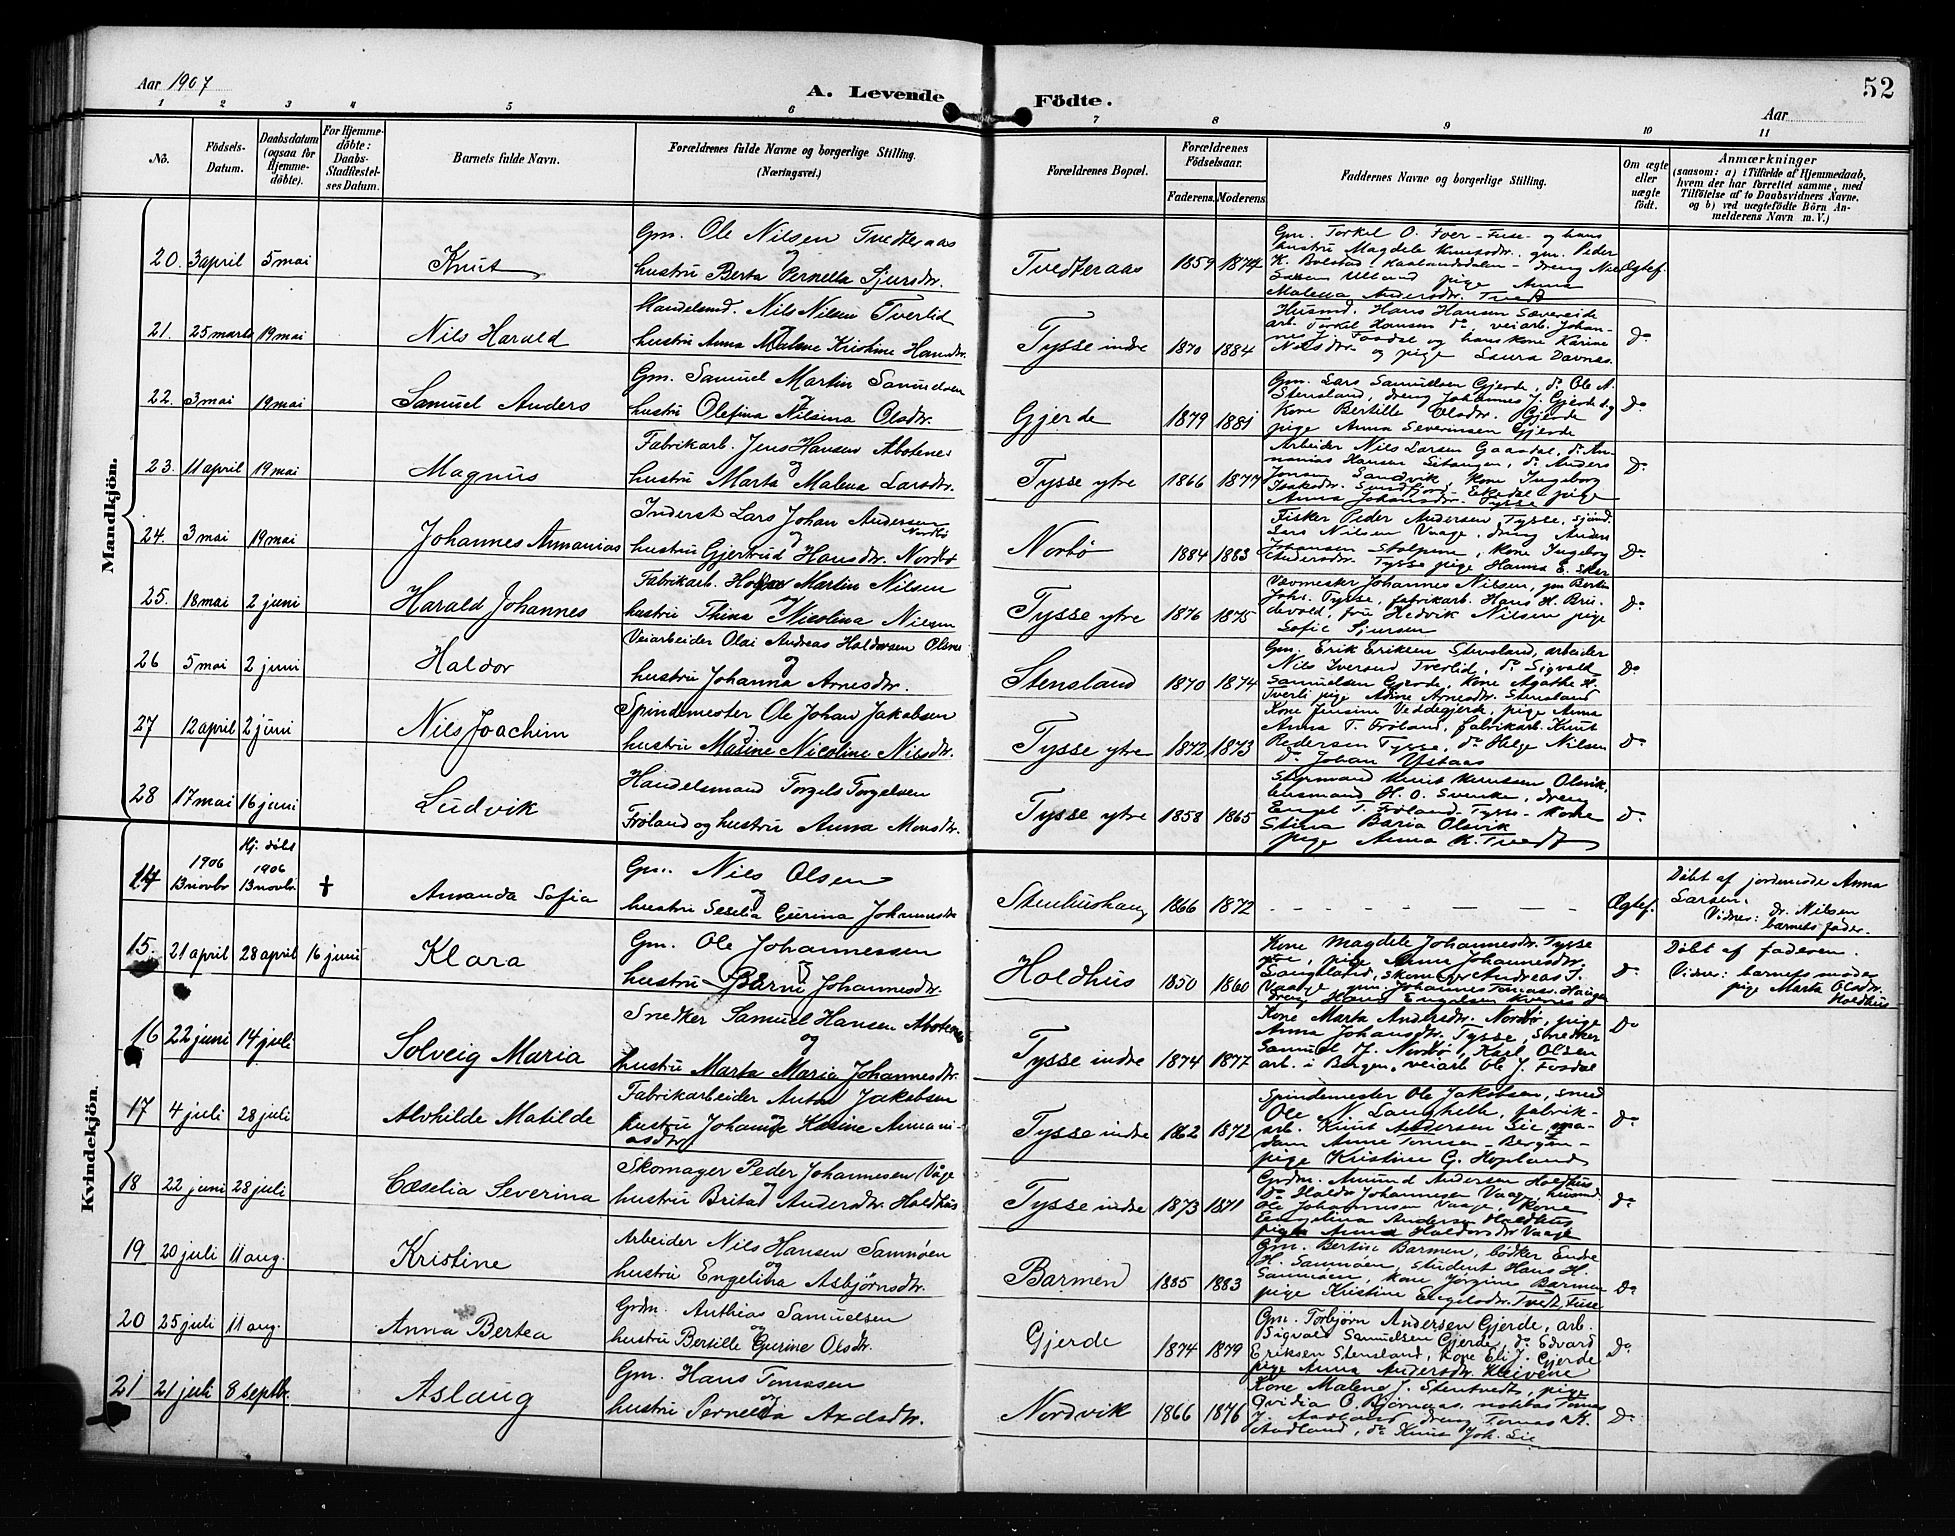 Aar 1907
A. Levende Födte.
Aar
52
1 2 3 4 5 6 7 8 9 10 11
No.
Födsels-Datum.
Daabsdatum (ogsaa for Hjemme-döbte).
For Hjemme-döbte: Daabs-Stadfæstelses Datum.
Barnets fulde Navn.
Forældrenes fulde Navne og borgerlige Stilling. (Næringsvei.)
Forældrenes Bopæl.
Forældrenes Födselsaar.
Faderens. Moderens.
Faddernes Navne og borgerlige Stilling.
Om ægte eller uægte födt.
Anmærkninger
(saasom: a) i Tilfælde af Hjemmedaab, hvem der har forrettet samme, med Tilföielse af to Daabsvidners Navne. og b) ved uægtefödte Börn Anmelderens Navn m. V.)
Mandkjön.
20. 3 april 5 mai Knut
Gm. Ole Nilsen Tvedteraas
og
hustru Berta Pernella Sjursdtr.
Tvedteraas 1859 1874
Gm. Torkel O. - Fuse - og hans
hustru Magdele Knutsdtr. gm. Peder
Ægtef.
21. 25 marts 19 mai Nils Harald
Handelsmd. Nils Nilsen Tverlid
hustru Anna Malene Kristine Hansdtr.
Tysse indre 1870 1884
Husmd. Hans Hansen Sævereide
arb. Torkel Hansen do, veiarb. Johan-
Do
22. 3 mai 19 mai Samuel Anders
Gm. Samuel Martin Samuelsen
hustru Olefina Nilsina Olsdtr.
Gjerde 1879 1881
Gm. Lars Samuelsen Gjerde, do Ole A.
Stensland, dreng Johannes J. Gjerde og
Kone Bertille Olsdtr. Gjerde
pige Anna Severinsen Gjerde
Do
23. 11 april 19 mai Magnus
Fabrikarb. Jens Hansen Abotenes
og
hustru Marta Malena Larsdtr.
Tysse ytre 1866 1877
Arbeider Nils Larsen Gaasdal, do An-
manias Hansen , do Anders
Jonsen Sandvik, Kone Ingeborg
Anna Johansdtr. Tysse
Do
24. 3 mai 19 mai Johannes Annanias
Inderst Lars Johan Andersen
Nordbø
og
hustru Gjertrud Hansdtr. Norbø
Norbø 1884 1883
Fisker Peder Andersen Tysse,
Lars Nilsen Vaage, dreng Anders
Johansen , Kone Ingeborg
Andersdtr. Tysse pige Hanna E.
Do
25. 18 mai 2 juni Harald Johannes
Fabrikarb. Martin Nilsen
og
hustru Thina Nicolina Nilsen
Tysse ytre 1876 1875
Vævmester Johannes Nilsen, gm
Johs. Tysse, fabrikarb. Hans H.
fru Hedvik Nilsen pige
Sofie Sjursen
Do
26 5 mai 2 juni Haldor
Veiarbeider Olai Andreas Haldorsen
og
hustru Johanna Arnesdtr.
Stensland 1870 1874
Gm. Erik Eriksen Stensland, arbeider
Nils Iversen Tverlid, do Sigvald
Samuelsen Gjerde, Kone Agathe H.
Tverli pige Arnesdtr. Stensland
Do
27 12 april 2 juni Nils Joachim
Spindemester Ole Johan Jakobsen
hustru Nicoline Nilsdtr.
Tysse ytre 1872 1873
Kone Jensine Veddegjerde, pige Anna
Anna T. Frøland, fabrikarb. Knut
Pedersen Tysse, do Helge Nilsen
do Johan Ystaas
Do
28 17 mai 16 juni Ludvik
Handelsmand Torgels Torgelsen
Frøland og hustru Anna Monsdtr.
Tysse ytre 1858 1865
Styrmand Knut Knutsen Olsvik,
dreng
Engel T. Frøland, Tysse - Kone
Stina Olsvik
pige Anna K. Tvedt
Do
Kvindekjön.
14 1906 13 novbr Hj. døbt 1906 13 novbr + Amanda Sofia
Gm. Nils Olsen
og
hustru Seselia Gurina Johannesdtr
Stenhushaug 1866 1872
Ægtef.
Døbt af jordmode Anna
Larsen.
Vidner: dr. Nilsen
barnets fader.
15. 21 april 28 april 16 juni Klara
Gm. Ole Johannessen
hustru Johannesdtr.
Holdhus 1850 1860
Kone Magdele Johannesdtr. Tysse
ytre, pige Anna Johannesdtr.
Do
Døbt af faderen.
Vidner: barnets moder
pige Marta Olsdtr.
Holdhus
16 22 juni 14 juli Solveig Maria
Snedker Samuel Hansen Abotenes
og
hustru Marta Maria Johannesdtr.
Tysse indre 1874 1877
Kone Marta Andersdtr. Norbø, pige
Anna Johansdtr. Tysse, snedker
Samuel J. Norbø, Karl Olsen
arb. i Bergen, veiarb Ole J. Fosdal
Do
17 4 juli 28 juli Alvhilde Matilde
Fabrikarbeider Jakobsen
hustru Annani-
asdtr
Tysse indre 1862 1872
Spindemester Ole Jakobsen, smed
Ole N. Langhelle, fabrik-
arb. Knut Andersen Lie, ma-
dam Anne Tomsen - Bergen -
pige Kristine G. Hopland
Do
18 22 juni 28 juli Cæselia Severina
Skomager Peder Johannesen Våge
og
hustru Brita Andersdtr. Holdhus
Tysse indre 1873 1871
Grdm. Amund Andersen Holdhus
do Haldor Johannesen Vaage, husmd.
Ole Johannesen Vaage, Kone
Engelina Andersen Holdhus
pige Anna Haldorsdtr Vaage
Do
19 20 juli 11 aug. Kristine
Arbeider Nils Hansen Samnøen
og
hustru Engelina Asbjørnsdtr.
Barmen 1885 1883
Gm. Bertin Barmen, bødker Endre
H. Samnøen, student Hans H.
Samnøen, kone Jørgine Barmen
pige Kristine Engelsdtr. Tvedt, Fuse
Do
20 25 juli 11 aug. Anna Bertea
Grdm. Anthias Samuelsen
og
hustru Bertille Gurine Olsdtr.
Gjerde 1874 1879
Gm. Torbjørn Andersen Gjerde, arb.
Sigvald Samuelsen Gjerde, do Edvard
Eriksen Stensland, Kone Eli J. Gjerde
pige Anna Andersdtr. Kleivene
Do
21 21 juli 8 septbr. Aslaug
Gm. Hans Tomasen
og
hustru Pernella Axelsdtr.
Nordvik 1866 1876
Kone Malene J. Stentvedt, pige
O. Bjørnaas, Tomas
J. Aadland, dreng Tomas K.
Aadland, do Knut Joh. Lie
Do